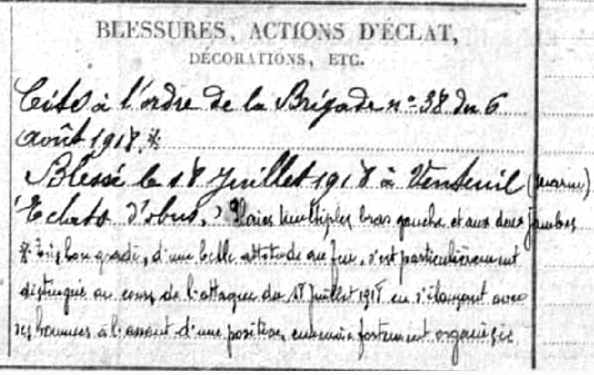 BLESSURES, ACTIONS D'ÉCLAT,
DÉCORATIONS, ETC.
Cité à l'ordre de la Brigade n° 38 du 6
août 1918.*
Blessé le 18 Juillet 1918 à Venteuil (marne)
Eclats d'obus, Plaies multiples bras gauche et aux deux jambes
* Très bon gradé, d'une belle attitude au feu, s'est particulièrement
distingué au cours de l'attaque du 18 Juillet 1918 en s'élançant avec
ses hommes à l'assaut d'une position ennemie fortement organisée